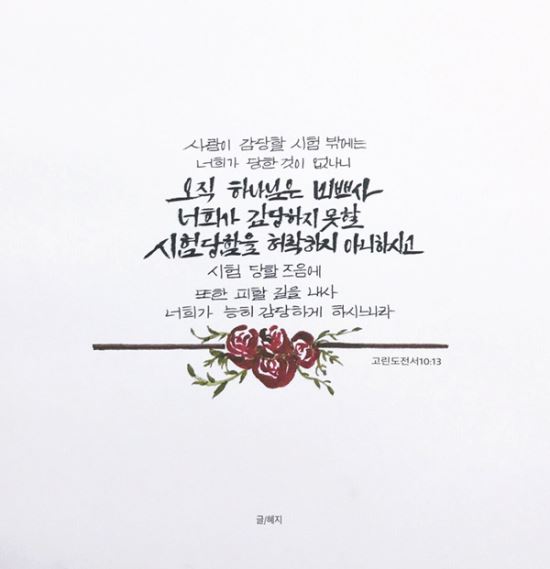 사람이 감당할 시험 밖에는
너희가 당한 것이 없나니
오직 하나님은 미쁘사
너희가 감당하지 못할
시험당함을 허락하지 아니하시고
시험 당할 즈음에
또한 피할 길을 내사
너희가 능히 감당하게 하시느니라
고린도전서10:13
글/혜지